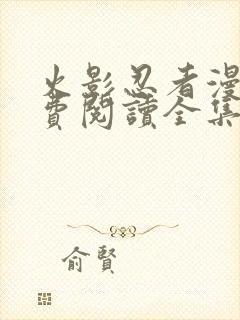 火影忍者漫
費閱讀全集
俞賢